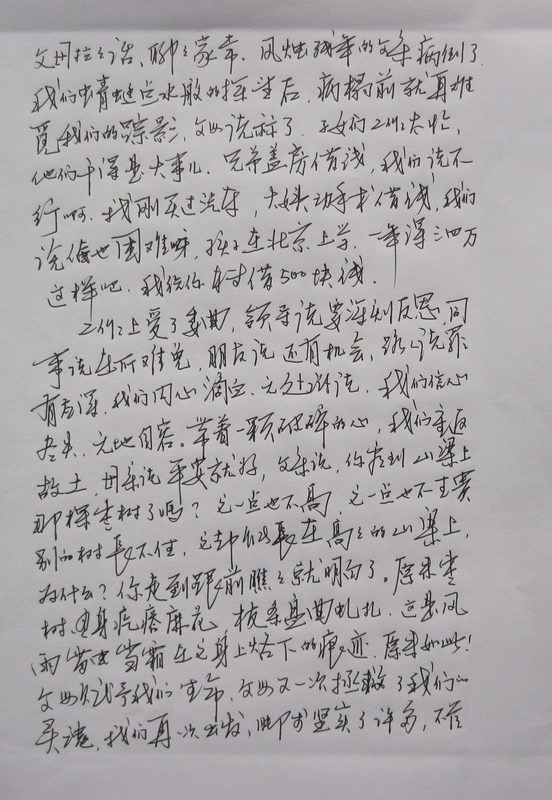 父母拉拉话，聊聊家常。风烛残年的父亲病倒了，
我们蜻蜓点水般的探望后，病榻前就再难
觅我们的踪影，父母说旷了，子女们工作太忙，
他们干得是大事儿。兄弟盖房借钱，我们说不
行啊，我刚买过汽车，大嫂动手术借钱，我们
说俺也困难呀，孩子在北京上学，一年得三四万
这样吧，我给你 借500块钱。
工作上受了委曲，领导说要深刻反思，同
事说在所难免，朋友说还有机会，路人说罪
有应得，我们内心滴血，无处诉说，我们信心
尽失，无地自容。带着一颗破碎的心，我们重返
故土，母亲说平安就好，父亲说，你看到山梁上
那棵枣树了吗？它一点也不高，它一点也不主贵
别的树长不住，它却能长在高高的山梁上，
为什么？你走到跟前瞧瞧就明白了。原来枣
树通身疙瘩麻花，枝条盘曲虬扎，这是风
雨雷电雪霜在它身上烙下的痕迹，原来如此！
父母赋予我们生命，父母又一次拯救了我们的
灵魂，我们再一次出发，脚步坚实了许多，不管